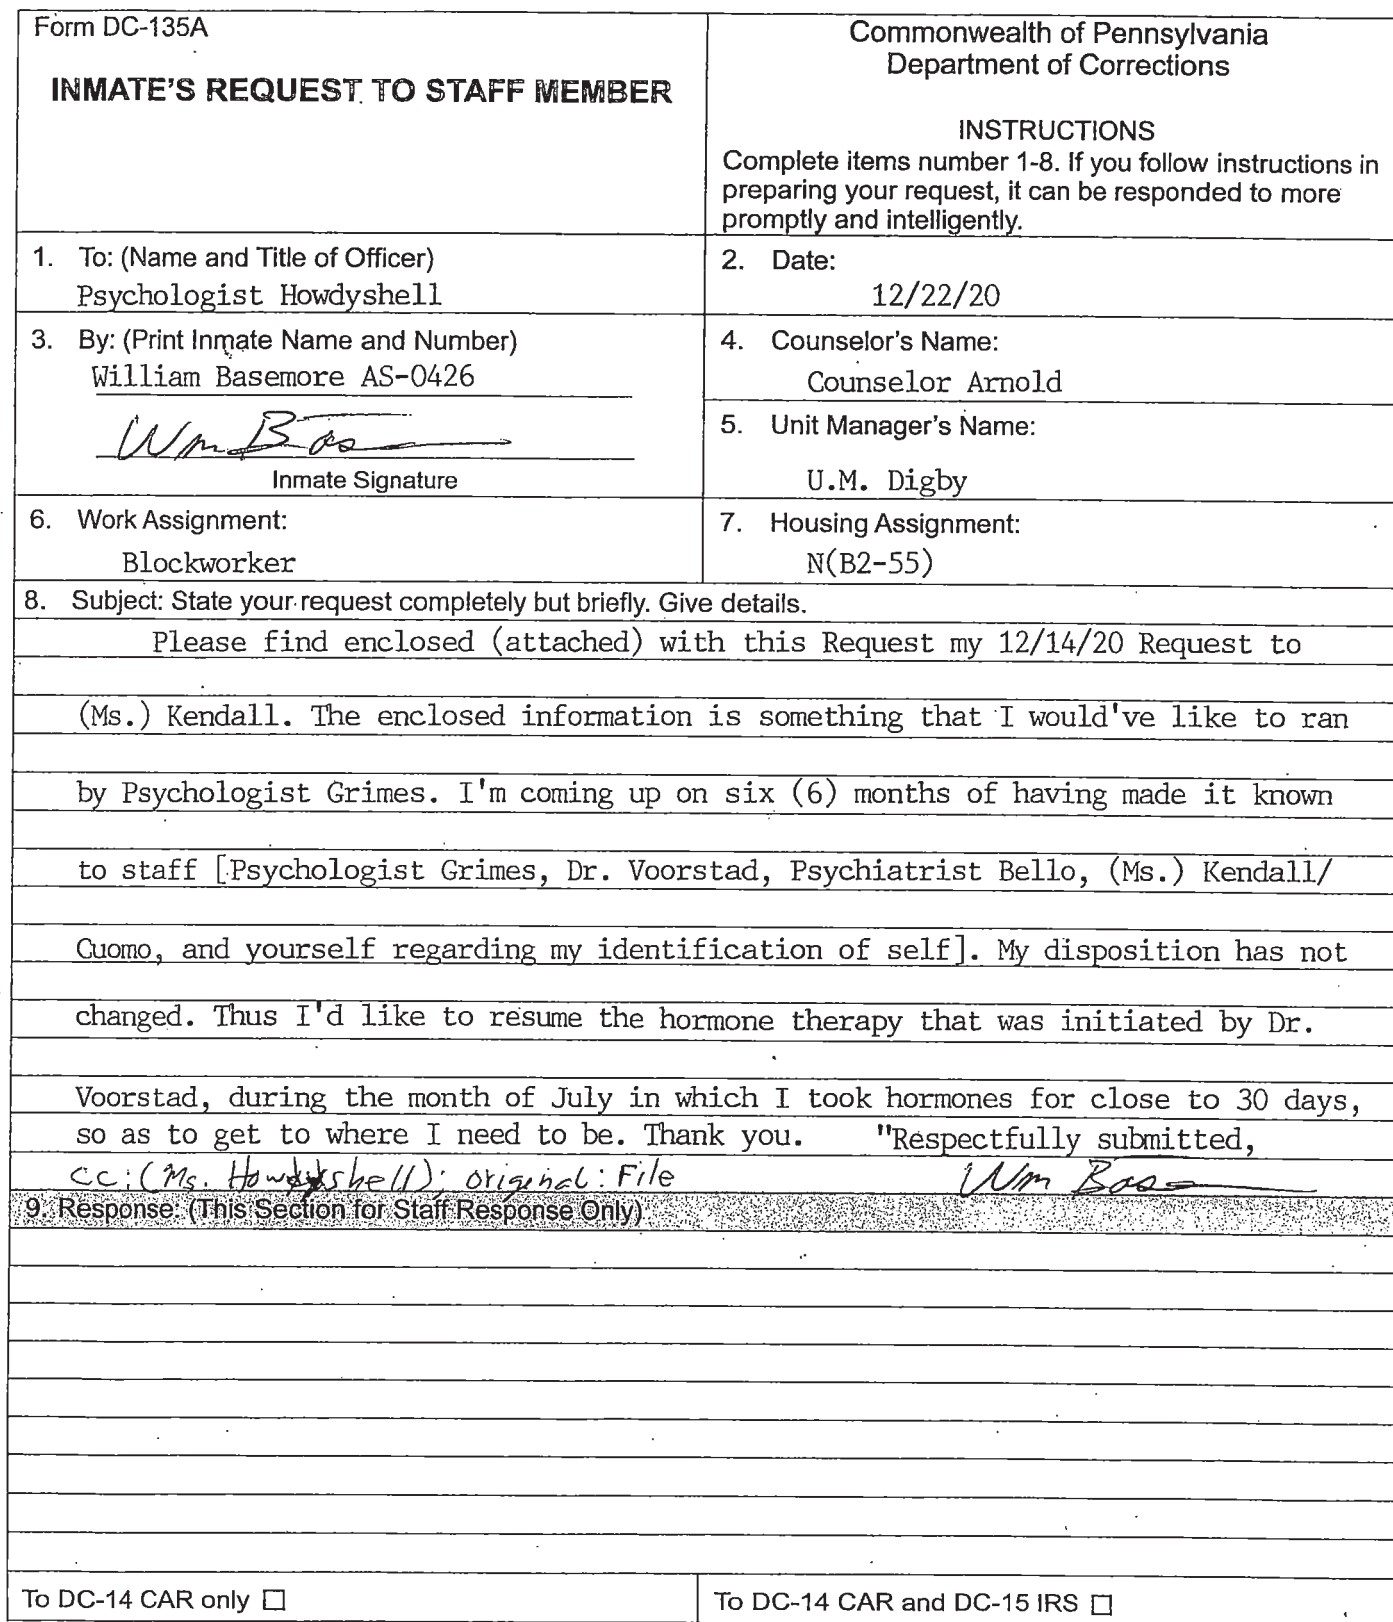 Form DC-135A
INMATE'S REQUEST TO STAFF MEMBER
Commonwealth of Pennsylvania
Department of Corrections
INSTRUCTIONS
Complete items number 1-8. If you follow instructions in
preparing your request, it can be responded to more
promptly and intelligently.
1. To: (Name and Title of Officer)
Psychologist Howdyshell
2. Date:
12/22/20
3. By: (Print Inmate Name and Number)
William Basemore AS-0426
Wm Bas
Inmate Signature
4. Counselor's Name:
Counselor Arnold
5. Unit Manager's Name:
U.M. Digby
6. Work Assignment:
Blockworker
7. Housing Assignment:
N(B2-55)
8. Subject: State your request completely but briefly. Give details.
Please find enclosed (attached) with this Request my 12/14/20 Request to
(Ms.) Kendall. The enclosed information is something that I would've like to ran
by Psychologist Grimes. I'm coming up on six (6) months of having made it known
to staff [Psychologist Grimes, Dr. Voorstad, Psychiatrist Bello, (Ms.) Kendall/
Cuomo, and yourself regarding my identification of self]. My disposition has not
changed. Thus I'd like to resume the hormone therapy that was initiated by Dr.
Voorstad, during the month of July in which I took hormones for close to 30 days,
so as to get to where I need to be. Thank you. "Respectfully submitted,
cc: (Ms. Howdyshell); original: File Wm Bas
9. Response: (This Section for Staff Response Only)
To DC-14 CAR only ☐
To DC-14 CAR and DC-15 IRS ☐